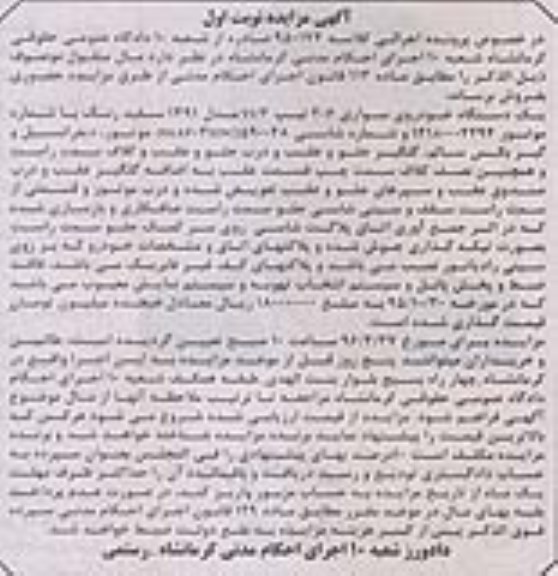 آگهی مزایده نوبت اول
در خصوص پرونده اجرائی کلاسه صادره از شعبه ۱۰ دادگاه عمومی حقوقی
کرمانشاه شعبه ۱۰ اجرای احکام مدنی کرمانشاه در نظر دارد مال منقول موصوف
ذیل الذکر را مطابق ماده قانون اجرای احکام مدنی از طریق مزایده حضوری
بفروش برساند
یک دستگاه خودروی سواری تیپ مدل ۱۳۹۱ سفید رنگ با شماره
موتور و شماره شاسی موتور، دیفرانسیل و
گیربکس سالم، گلگیر جلو و عقب و درب جلو و عقب و کلاف سمت راست
و همچنین نصف کلاف سمت چپ قسمت عقب به اضافه گلگیر عقب و درب
صندوق عقب و سپرهای جلو و عقب تعویض شده و درب موتور و قسمتی از
سمت راست سقف و سینی شاسی جلو سمت راست صافکاری و بازسازی شده
که در اثر جمع آوری اتاق پلاکت شاسی روی سر کمک جلو سمت راست
بصورت تیکه گذاری جوش شده و پلاکهای اتاق و مشخصات خودرو که بر روی
سینی رادیاتور نصب می باشد و پلاکهای کیف غیر فابریک می باشد، فاقد
ضبط و پخش پانل و سیستم انتخاب تهویه و سیستم نمایش معیوب می باشد
که در مورخه ۹۵/۱۰/۳۰ به مبلغ ریال معادل هیجده میلیون تومان
قیمت گذاری شده است
مزایده برای مورخ ساعت ۱۰ صبح تعیین گردیده است طالبین
و خریداران میتوانند پنج روز قبل از موعد مزایده به این اجرا واقع در
کرمانشاه چهار راه بسیج بلوار بنت الهدی طبقه همکف شعبه ۱۰ اجرای احکام
دادگاه عمومی حقوقی کرمانشاه مراجعه تا ترتیب ملاحظه آنها از مال موضوع
آگهی فراهم شود مزایده از قیمت ارزیابی شده شروع می شود هرکس که
بالاترین قیمت را پیشنهاد نماید برنده مزایده شناخته خواهد شد و برنده
مزایده مکلف است ۱۰ درصد بهای پیشنهادی را فی المجلس بعنوان سپرده به
حساب دادگستری تودیع و رسید دریافت و باقیمانده آن را حداکثر ظرف مهلت
یک ماه از تاریخ مزایده به حساب مزبور واریز کند، در صورت عدم پرداخت
بقیه بهای مال در موعد مقرر مطابق ماده ۱۲۹ قانون اجرای احکام مدنی سپرده
فوق الذکر پس از کسر هزینه مزایده به نفع دولت ضبط خواهد شد.
دادورز شعبه ۱۰ اجرای احکام مدنی کرمانشاه ـ رستمی